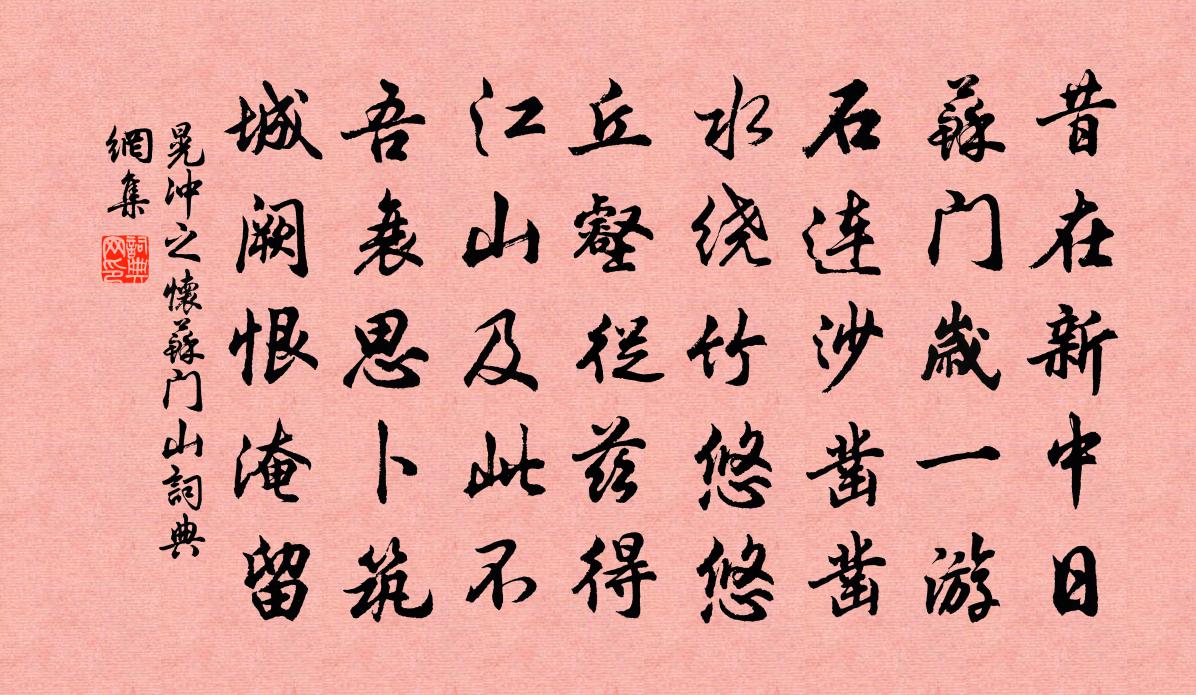 昔在新中日
蘇门歲一游
石连沙凿凿
水绕竹悠悠
丘壑從茲得
江山及此不
吾衰思卜筑
城阙恨淹留
晃冲之懷蘇门山詞典
網集
詞典网印